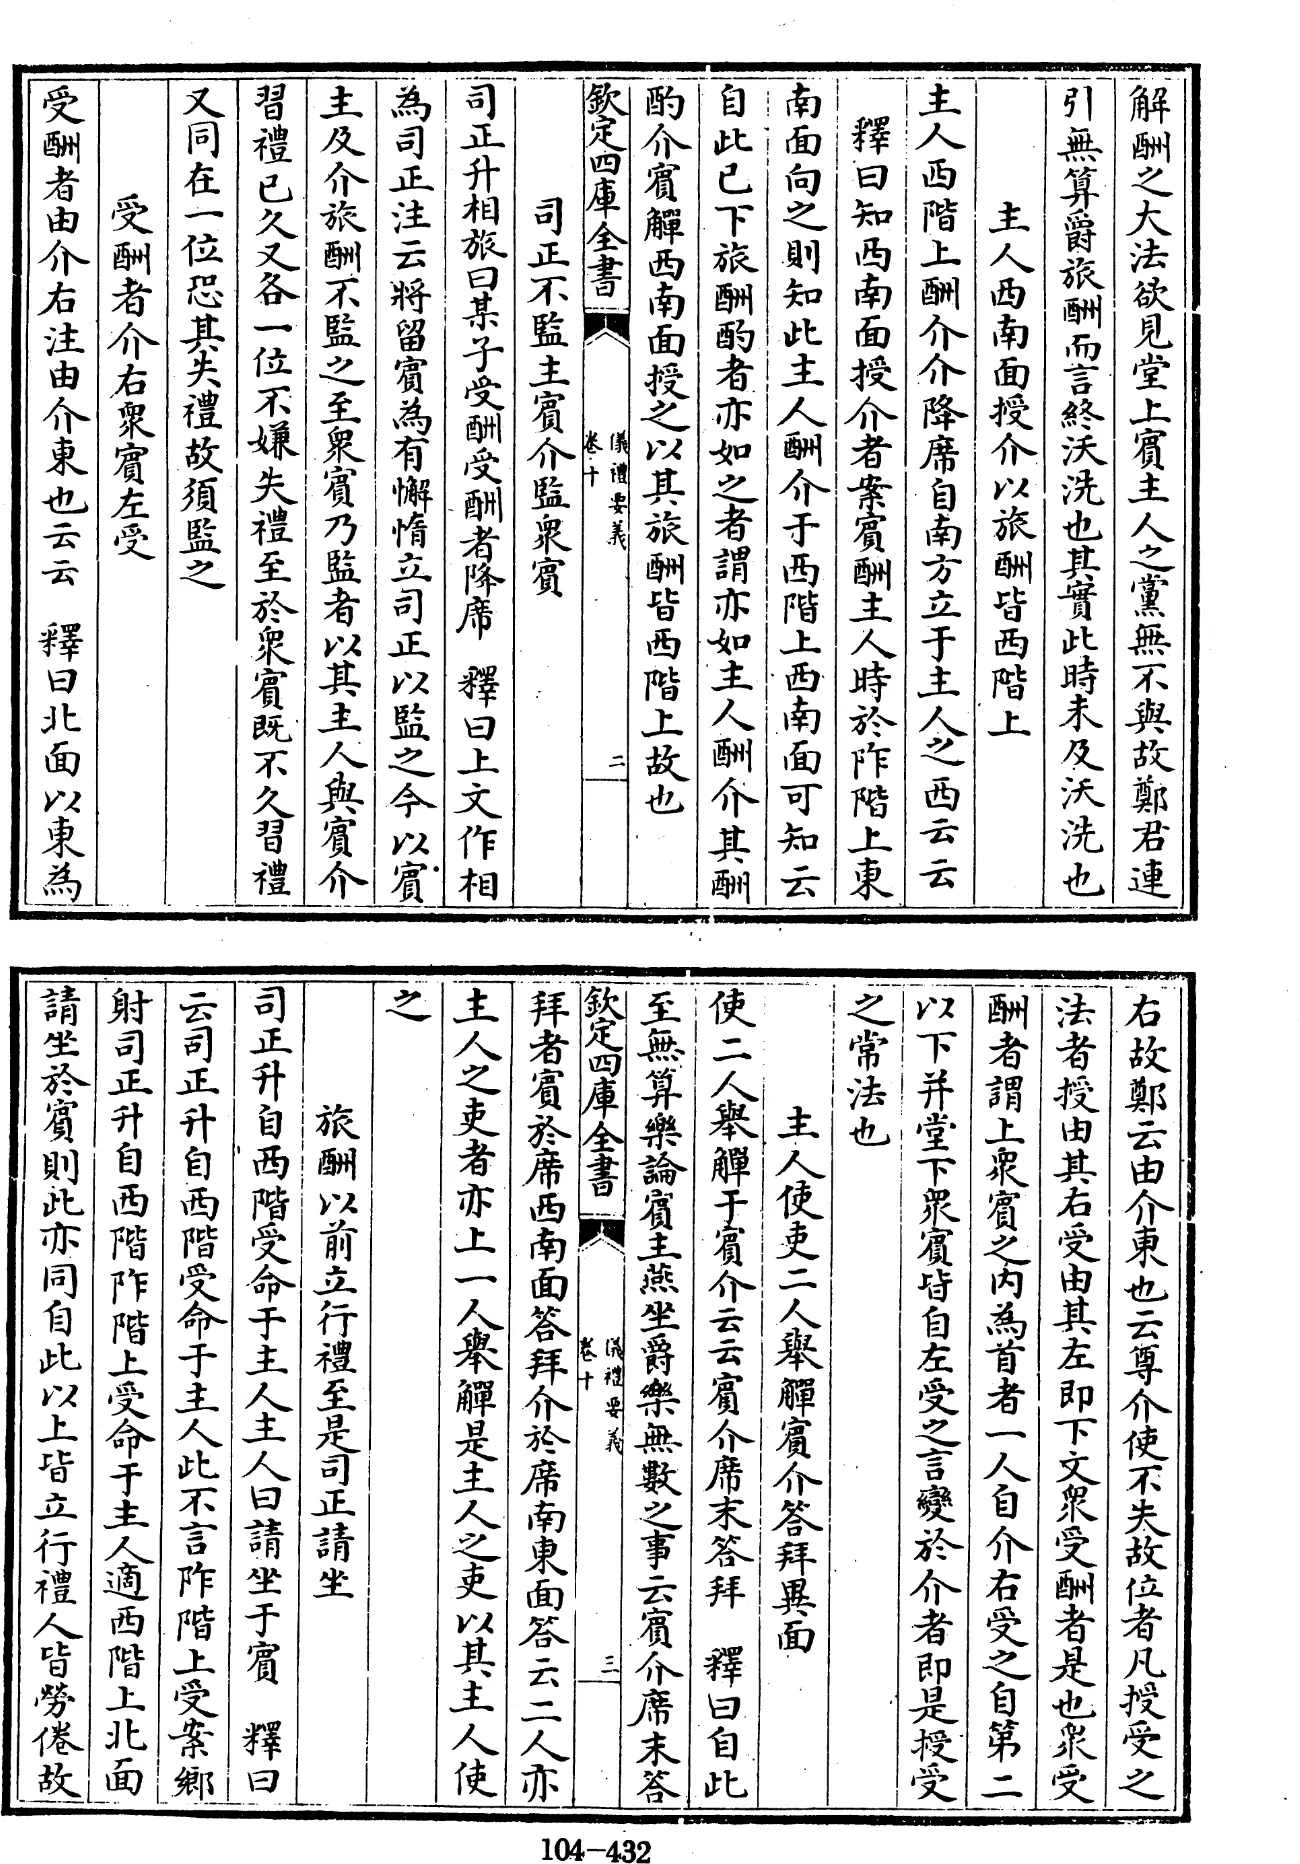 解酬之大法欲見堂上賓主人之黨無不與故鄭君連
引無算爵旅酬而言終沃洗也其實此時未及沃洗也
主人西南面授介以旅酬皆西階上
主人西階上酬介介降席自南方立于主人之西云云
釋曰知西南面授介者案賓酬主人時於阼階上東
南面向之則知此主人酬介于西階上西南面可知云
自此已下旅酬酌者亦如之者謂亦如主人酬介其酬
酌介賓觶西南面授之以其旅酬皆西階上故也
欽定四庫全書
儀禮要義
卷十
二
司正不監主賓介監衆賓
司正升相旅曰某子受酬受酬者降席 釋曰上文作相
為司正注云將留賓為有懈惰立司正以監之今以賓
主及介旅酬不監之至衆賓乃監者以其主人與賓介
習禮已久又各一位不嫌失禮至於衆賓既不久習禮
又同在一位恐其失禮故須監之
受酬者介右衆賓左受
受酬者由介右注由介東也云云 釋曰北面以東為
右故鄭云由介東也云尊介使不失故位者凡授受之
法者授由其右受由其左即下文衆受酬者是也衆受
酬者謂上衆賓之内為首者一人自介右受之自第二
以下并堂下衆賓皆自左受之言變於介者即是授受
之常法也
主人使吏二人舉觶賓介答拜異面
使二人舉觶于賓介云云賓介席末答拜 釋曰自此
至無算樂論賓主燕坐爵樂無數之事云賓介席末答
欽定四庫全書
儀禮要義
卷十
三
拜者賓於席西南面答拜介於席南東面答云二人亦
主人之吏者亦上一人舉觶是主人之吏以其主人使
之
旅酬以前立行禮至是司正請坐
司正升自西階受命于主人主人曰請坐于賓 釋曰
云司正升自西階受命于主人此不言阼階上受案鄉
射司正升自西階阼階上受命于主人適西階上北面
請坐於賓則此亦同自此以上皆立行禮人皆勞倦故
104-432